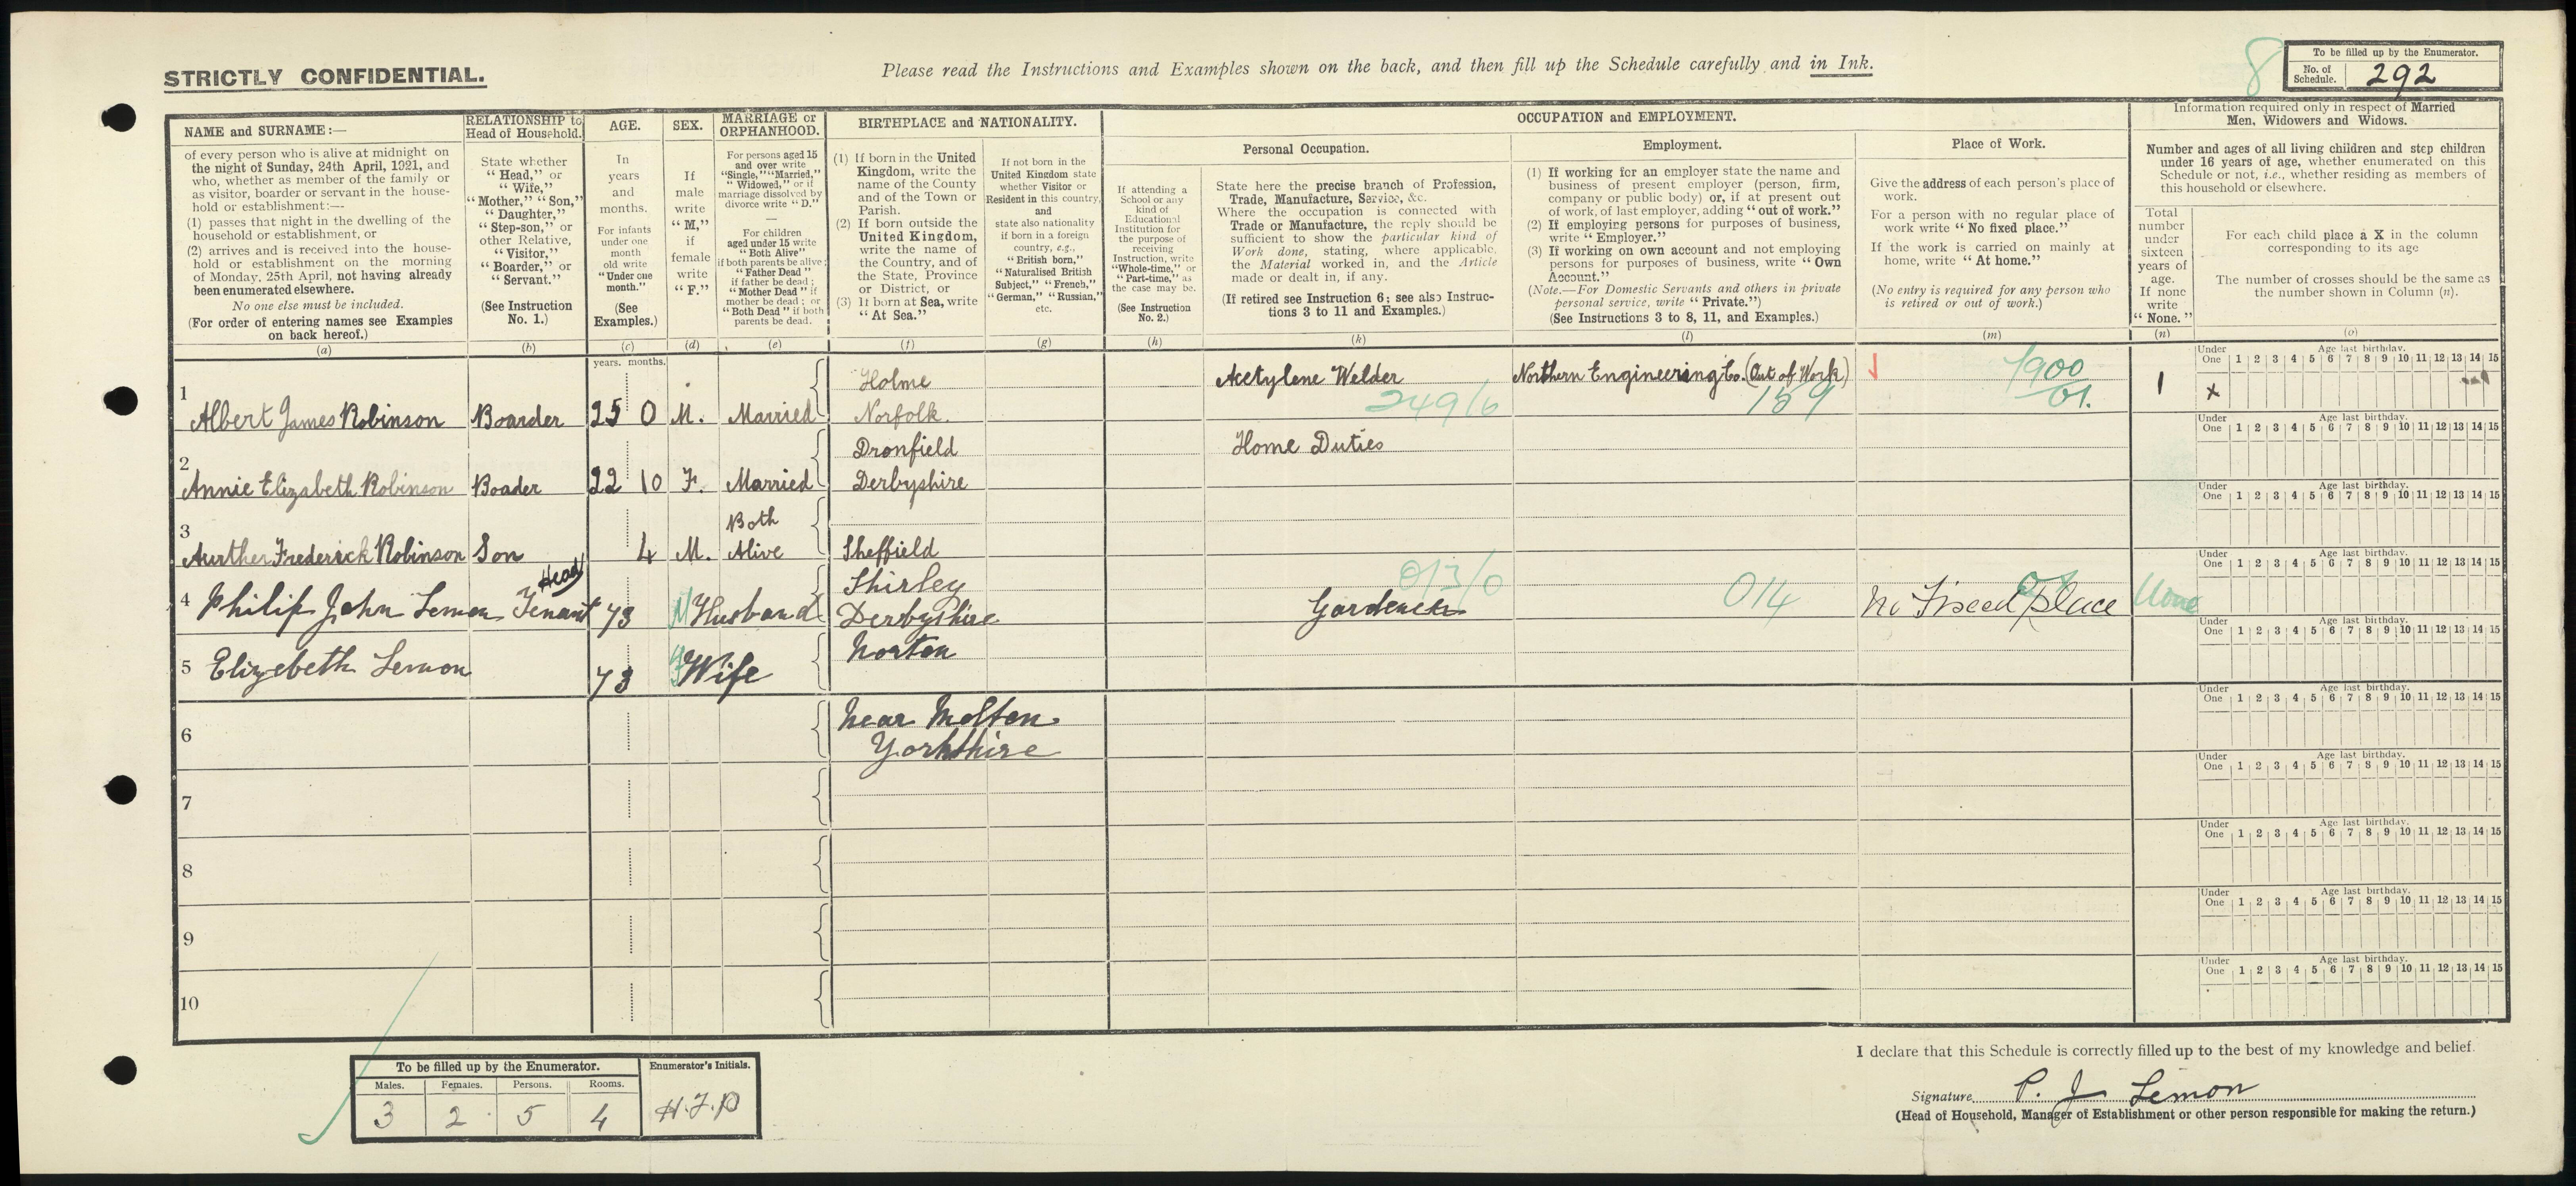 STRICTLY CONFIDENTIAL.
Please read the Instructions and Examples shown on the back, and then fill up the Schedule carefully and in Ink.
8
To be filled up by the Enumerator.
No. of Schedule. 292
NAME and SURNAME:—
of every person who is alive at midnight on
the night of Sunday, 24th April, 1921, and
who, whether as member of the family or
as visitor, boarder or servant in the house-
hold or establishment:—
(1) passes that night in the dwelling of the
household or establishment, or
(2) arrives and is received into the house-
hold or establishment on the morning
of Monday, 25th April, not having already
been enumerated elsewhere.
No one else must be included.
(For order of entering names see Examples
on back hereof.)
(a)
RELATIONSHIP to
Head of Household.
State whether
"Head," or
"Wife,"
"Mother," "Son,"
"Daughter,"
"Step-son," or
other Relative,
"Visitor,"
"Boarder," or
"Servant."
(See Instruction
No. 1.)
(b)
AGE.
In
years
and
months.
For infants
under one
month
old write
"Under one
month."
(See
Examples.)
(c)
years. months.
SEX.
If
male
write
"M,"
if
female
write
"F."
(d)
MARRIAGE or
ORPHANHOOD.
For persons aged 15
and over write
"Single," "Married,"
"Widowed," or if
marriage dissolved by
divorce write "D."
—
For children
aged under 15 write
"Both Alive"
if both parents be alive;
"Father Dead"
if father be dead;
"Mother Dead" if
mother be dead; or
"Both Dead" if both
parents be dead.
(e)
BIRTHPLACE and NATIONALITY.
(1) If born in the United
Kingdom, write the
name of the County
and of the Town or
Parish.
(2) If born outside the
United Kingdom,
write the name of
the Country, and of
the State, Province
or District, or
(3) If born at Sea, write
"At Sea."
(f)
If not born in the
United Kingdom state
whether Visitor or
Resident in this country,
and
state also nationality
if born in a foreign
country, e.g.,
"British born,"
"Naturalised British
Subject," "French,"
"German," "Russian,"
etc.
(g)
OCCUPATION and EMPLOYMENT.
Personal Occupation.
If attending a
School or any
kind of
Educational
Institution for
the purpose of
receiving
Instruction, write
"Whole-time," or
"Part-time," as
the case may be.
(See Instruction
No. 2.)
(h)
State here the precise branch of Profession,
Trade, Manufacture, Service, &c.
Where the occupation is connected with
Trade or Manufacture, the reply should be
sufficient to show the particular kind of
Work done, stating, where applicable,
the Material worked in, and the Article
made or dealt in, if any.
(If retired see Instruction 6; see also Instruc-
tions 3 to 11 and Examples.)
(k)
Employment.
(1) If working for an employer state the name and
business of present employer (person, firm,
company or public body) or, if at present out
of work, of last employer, adding "out of work."
(2) If employing persons for purposes of business,
write "Employer."
(3) If working on own account and not employing
persons for purposes of business, write "Own
Account."
(Note.—For Domestic Servants and others in private
personal service, write "Private.")
(See Instructions 3 to 8, 11, and Examples.)
(l)
Place of Work.
Give the address of each person's place of
work.
For a person with no regular place of
work write "No fixed place."
If the work is carried on mainly at
home, write "At home."
(No entry is required for any person who
is retired or out of work.)
(m)
Information required only in respect of Married
Men, Widowers and Widows.
Number and ages of all living children and step children
under 16 years of age, whether enumerated on this
Schedule or not, i.e., whether residing as members of
this household or elsewhere.
Total
number
under
sixteen
years of
age.
If none
write
"None."
(n)
For each child place a X in the column
corresponding to its age
The number of crosses should be the same as
the number shown in Column (n).
(o)
Under One Age last birthday. 1 2 3 4 5 6 7 8 9 10 11 12 13 14 15
1 Albert James Robinson Boarder 25 0 M. Married Holme Norfolk. Acetylene Welder 249/6 Northern Engineering Co. (Out of Work) 159 1900/01. 1 X
Under One Age last birthday. 1 2 3 4 5 6 7 8 9 10 11 12 13 14 15
2 Annie Elizabeth Robinson Boader 22 10 F. Married Dronfield Derbyshire Home Duties
Under One Age last birthday. 1 2 3 4 5 6 7 8 9 10 11 12 13 14 15
3 Aurther Frederick Robinson Son 4 M. Both Alive Sheffield
Under One Age last birthday. 1 2 3 4 5 6 7 8 9 10 11 12 13 14 15
4 Philip John Lemon Tenant Head 73 M Husband Shirley Derbyshire Gardener 013/0 014 no Fixed place None
Under One Age last birthday. 1 2 3 4 5 6 7 8 9 10 11 12 13 14 15
5 Elizebeth Lemon 73 F Wife Norton
Under One Age last birthday. 1 2 3 4 5 6 7 8 9 10 11 12 13 14 15
6 near Molton Yorkthire
Under One Age last birthday. 1 2 3 4 5 6 7 8 9 10 11 12 13 14 15
7
Under One Age last birthday. 1 2 3 4 5 6 7 8 9 10 11 12 13 14 15
8
Under One Age last birthday. 1 2 3 4 5 6 7 8 9 10 11 12 13 14 15
9
Under One Age last birthday. 1 2 3 4 5 6 7 8 9 10 11 12 13 14 15
10
To be filled up by the Enumerator.
Males. Females. Persons. Rooms.
3 2 5 4
Enumerator's Initials.
H.J.P
I declare that this Schedule is correctly filled up to the best of my knowledge and belief.
Signature P. J Lemon
(Head of Household, Manager of Establishment or other person responsible for making the return.)